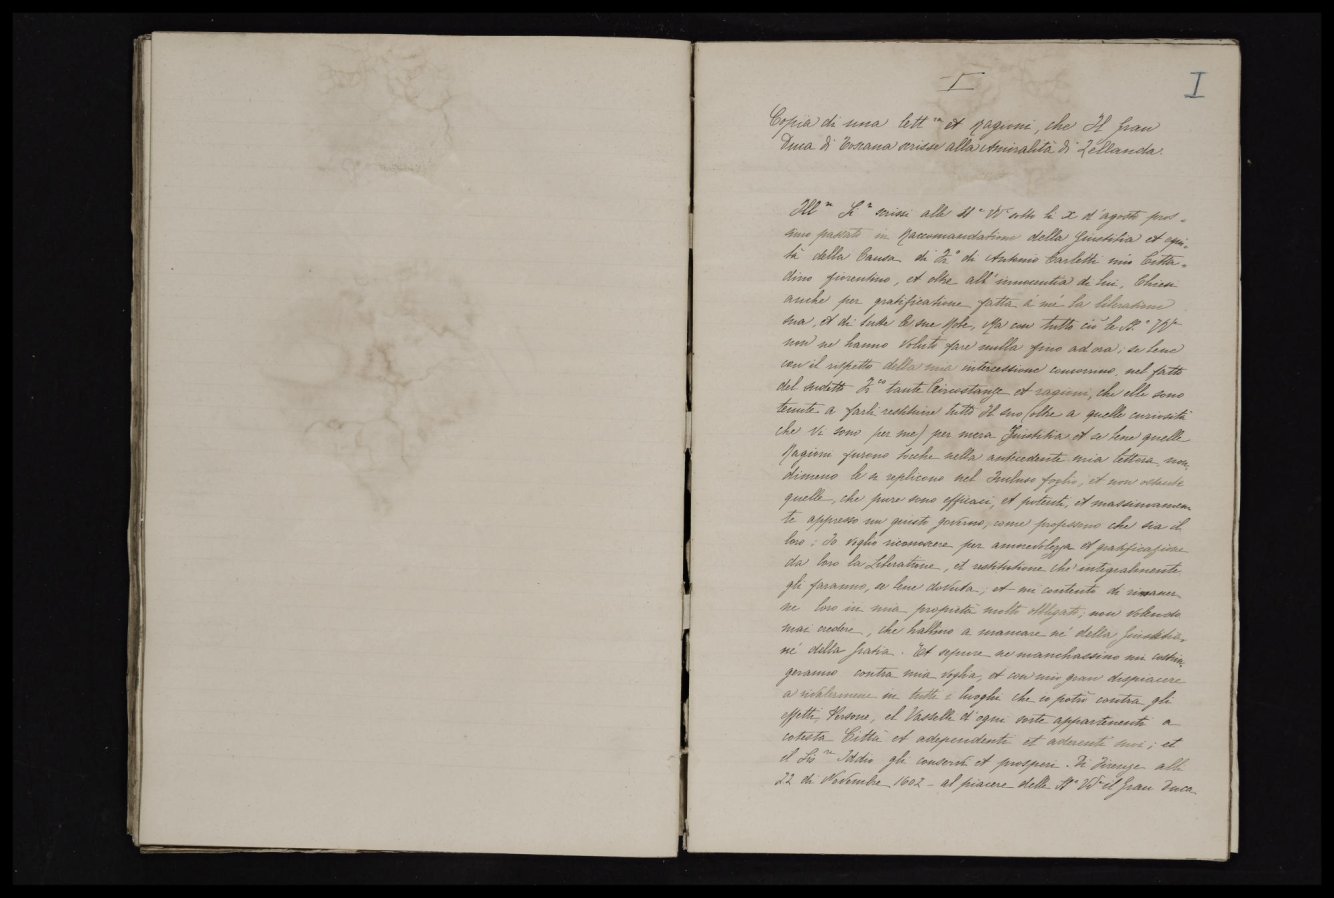 I
I
Copia di una lett.ra et Ragioni, che Il Gran
Duca di Toscana scrisse alla Amiralità di Zellanda.
Ill.mi S.ri scrissi alle SS.e VV. sotto li X d'agosto pros=
simo passato in Raccomandatione della Giustitia et equi=
tà della Causa di Fr.co di Antonio Carletti mio Citta=
dino fiorentino, et oltre all'innocentia di lui, Chiesi
anche per gratificatione fatta a me la liberatione
sua, et di tutte le sue Robe, Ma con tutto ciò le SS.e VV.
non ne hanno voluto fare nulla fino ad ora; se bene
con il rispetto della mia intercessione concorrino, nel fatto
del sudetto Fr.co tante Circostanze et ragioni, che elle sono
tenute a farli restituire tutto Il suo (oltre a quelle curiosità
che vi sono per me) per mera Giustitia et se bene quelle
Ragioni furono tocche nella antecedente mia lettera, non
dimeno le si replicono nel Incluso foglio, et non ostante
quelle, che pure sono efficaci, et potenti, et massimamen
te appresso un giusto governo, come professano che sia il
loro; Io voglio riconoscere per amorevolezza et gratificazione
da loro la Liberatione, et restitutione che integralmente
gli faranno, se bene dovuta; et mi contento di rimaner
ne loro in mia proprietà molto obbligato; non volendo
mai credere, che habbino a mancare né della Giustitia,
né della gratia. Et sepure ne manchassino mi costrin
geranno contra mia voglia, et con mio gran dispiacere
a rivalermene in tutti i luoghi che io potrò contra gli
effetti, Persone, et Vasselli d'ogni sorte appartenenti a
cotesta Città et adependenti et aderenti suoi; et
il Sig.re Iddio gli conservi et prosperi. Di Firenze alli
22 di Novembre 1602 - al piacere delle SS.e VV. il Gran Duca